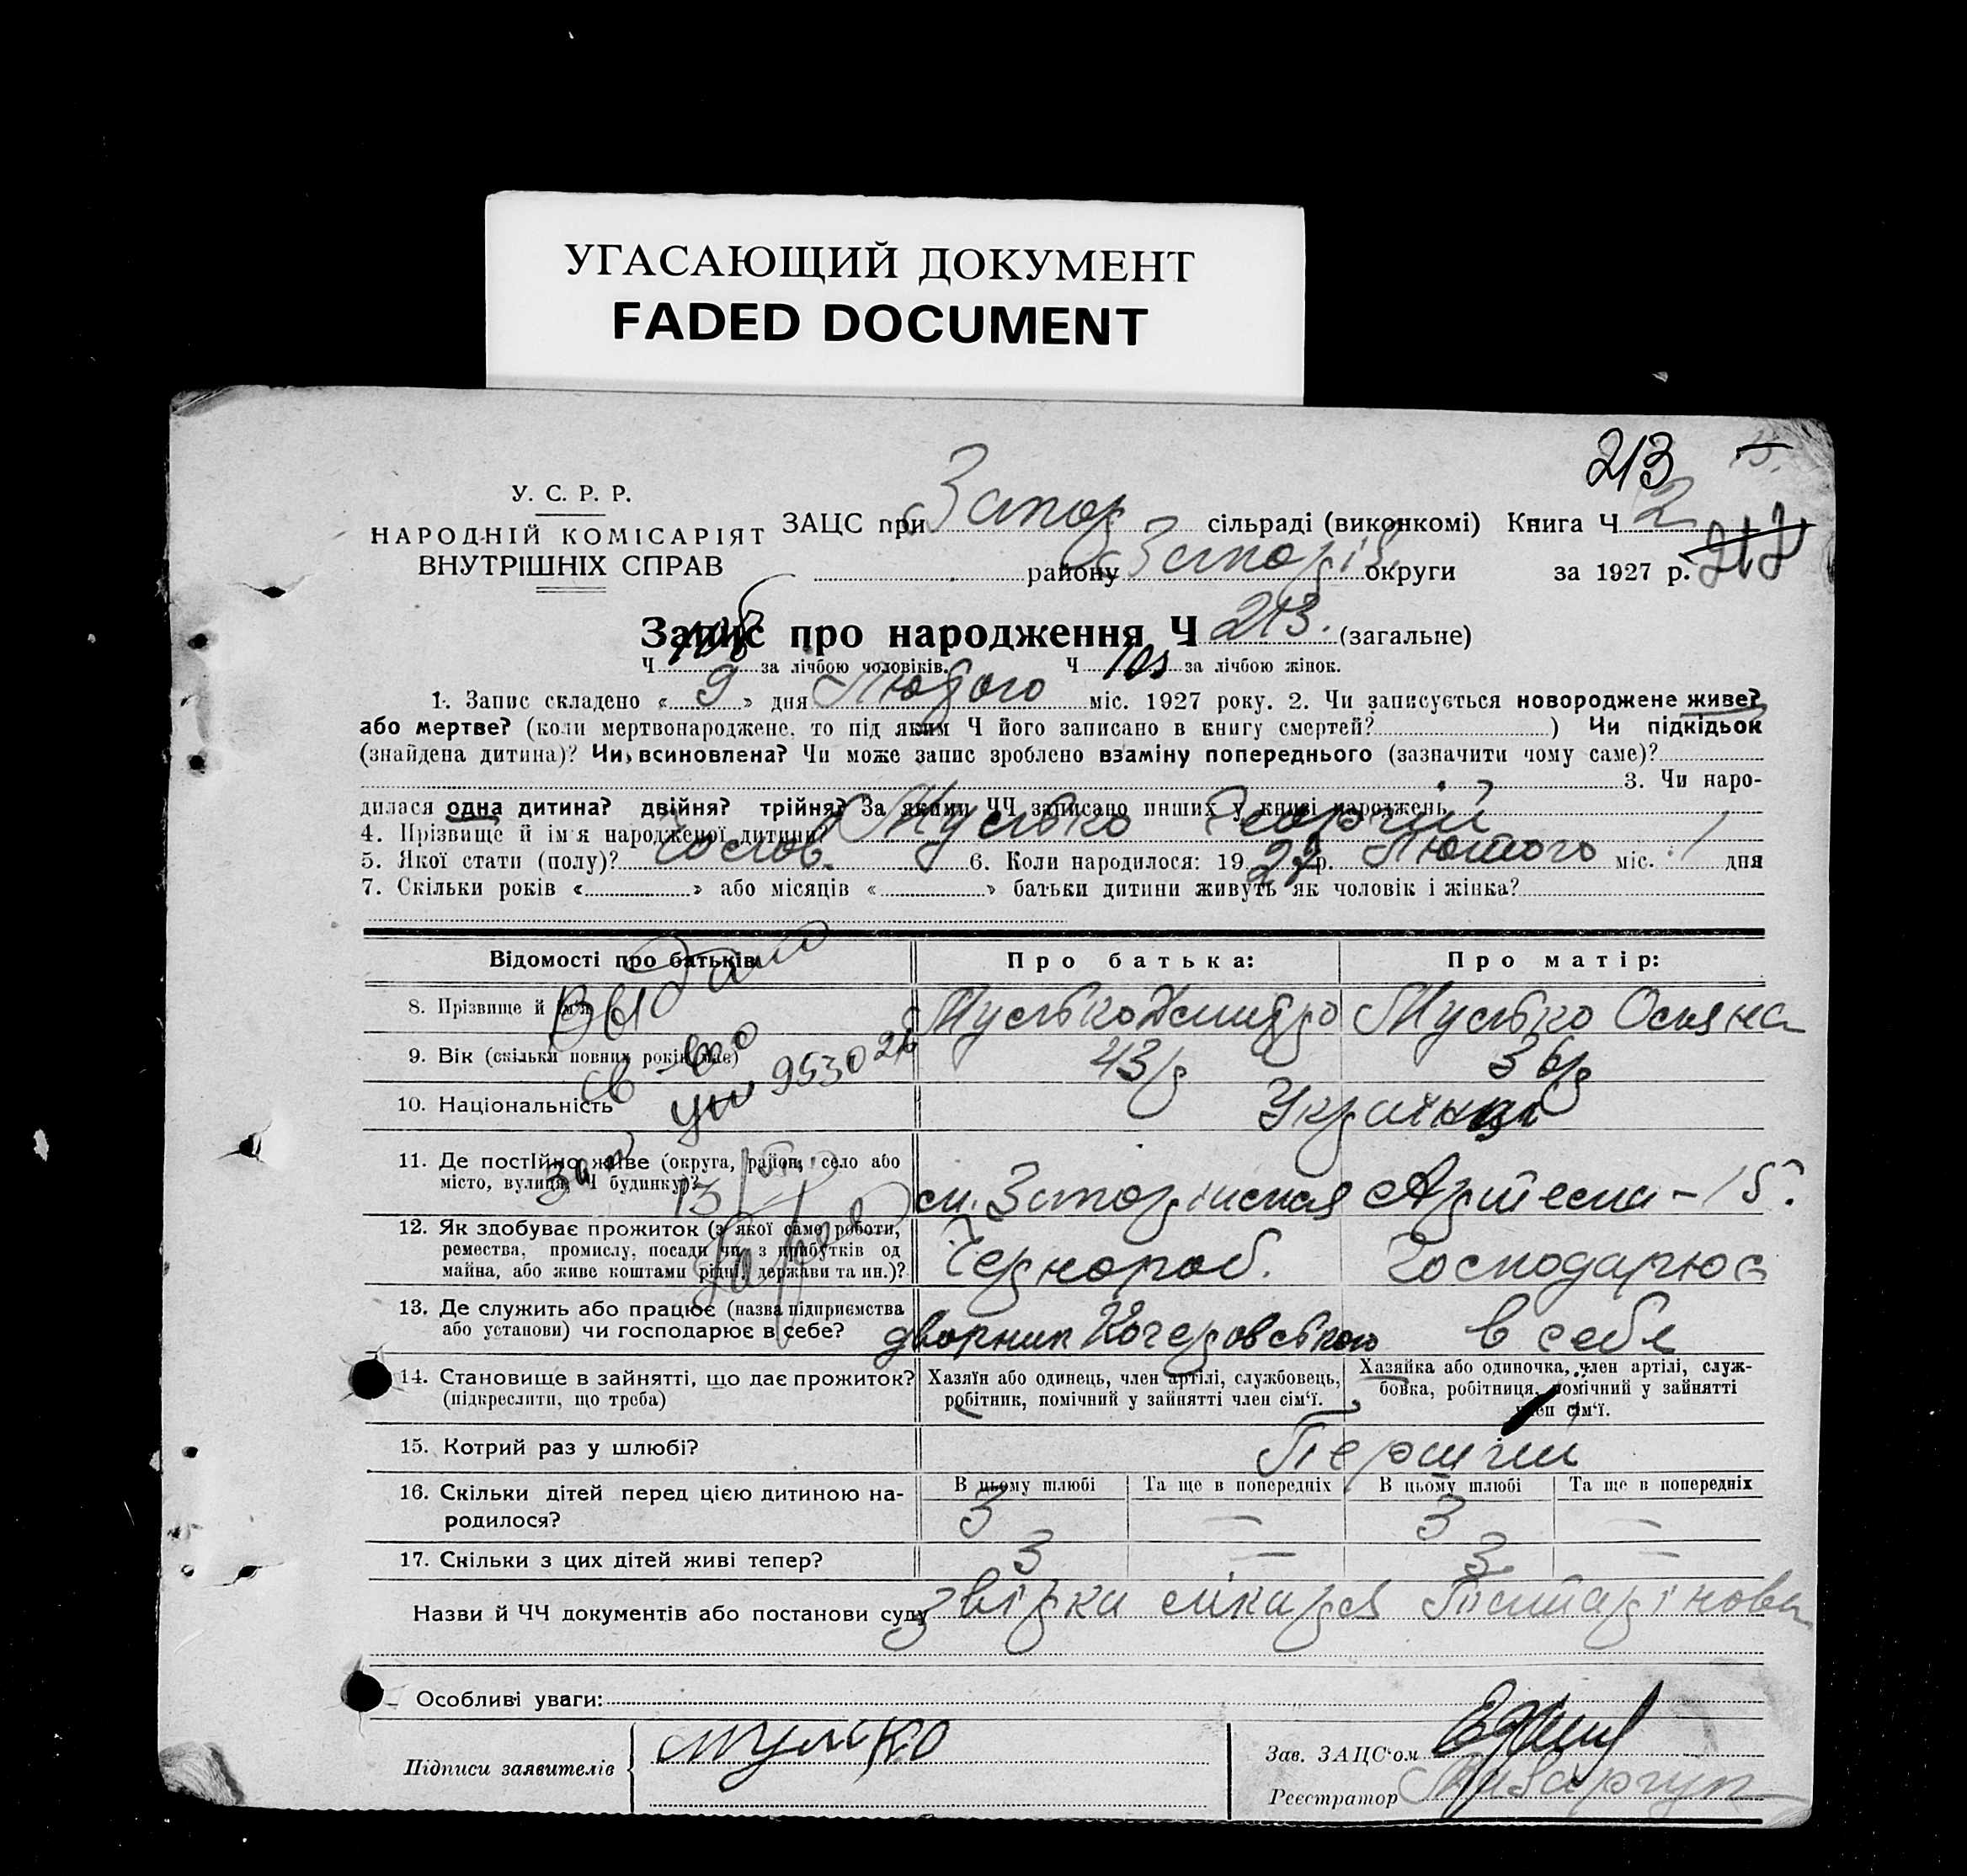 УГАСАЮЩИЙ ДОКУМЕНТ
FADED DOCUMENT
213
15.
У. С. Р. Р.
НАРОДНІЙ КОМІСАРІЯТ
ВНУТРІШНІХ СПРАВ
ЗАЦС при Запор сільраді (виконкомі) Книга Ч 2
району Запоріз. округи за 1927 р. 212
Запис про народження Ч 213. (загальне)
Ч 108 за лічбою чоловіків. Ч 105 за лічбою жінок.
1. Запис складено « 9 » дня Лютого міс. 1927 року. 2. Чи записується новороджене живе?
або мертве? (коли мертвонароджене, то під яким Ч його записано в книгу смертей? ) Чи підкідьок
(знайдена дитина)? Чи всиновлена? Чи може запис зроблено взаміну попереднього (зазначити чому саме)?
3. Чи наро-
дилася одна дитина? двійня? трійня? За якими ЧЧ записано инших у книзі народжень
4. Прізвище й ім'я народженої дитини? Мулько Георгій
5. Якої стати (полу)? Чолов. 6. Коли народилося: 19 27 р. Лютого міс. 1 дня
7. Скільки років « » або місяців « » батьки дитини живуть як чоловік і жінка?
Відомості про батьків Про батька: Про матір:
8. Прізвище й ім'я Мулько Дмитро Мулько Оляна
Выдано
9. Вік (скільки повних років має) 43/р 36/р
св-во
10. Національність Українці
11. Де постійно живе (округа, район, село або
місто, вулиця, Ч будинку)? м. Запоріжжя Артема – 15.
12. Як здобуває прожиток (з якої саме роботи,
ремества, промислу, посади чи з прибутків од
майна, або живе коштами рідні, держави та ин.)? Чернороб. Господарює
13. Де служить або працює (назва підприємства
або установи) чи господарює в себе? дворник в себе
14. Становище в зайнятті, що дає прожиток?
(підкреслити, що треба)
Хазяїн або одинець, член артілі, службовець,
робітник, помічний у зайнятті член сім'ї.
Хазяйка або одиночка, член артілі, служ-
бовка, робітниця, помічний у зайнятті
член сім'ї.
15. Котрий раз у шлюбі? Перший
16. Скільки дітей перед цією дитиною на-
родилося?
В цьому шлюбі Та ще в попередніх В цьому шлюбі Та ще в попередніх
3 — 3 —
17. Скільки з цих дітей живі тепер? 3 — 3 —
Назви й ЧЧ документів або постанови суду звірка лікаря
Особливі уваги:
Підписи заявителів Мулько
Зав. ЗАЦС'ом
Реєстратор